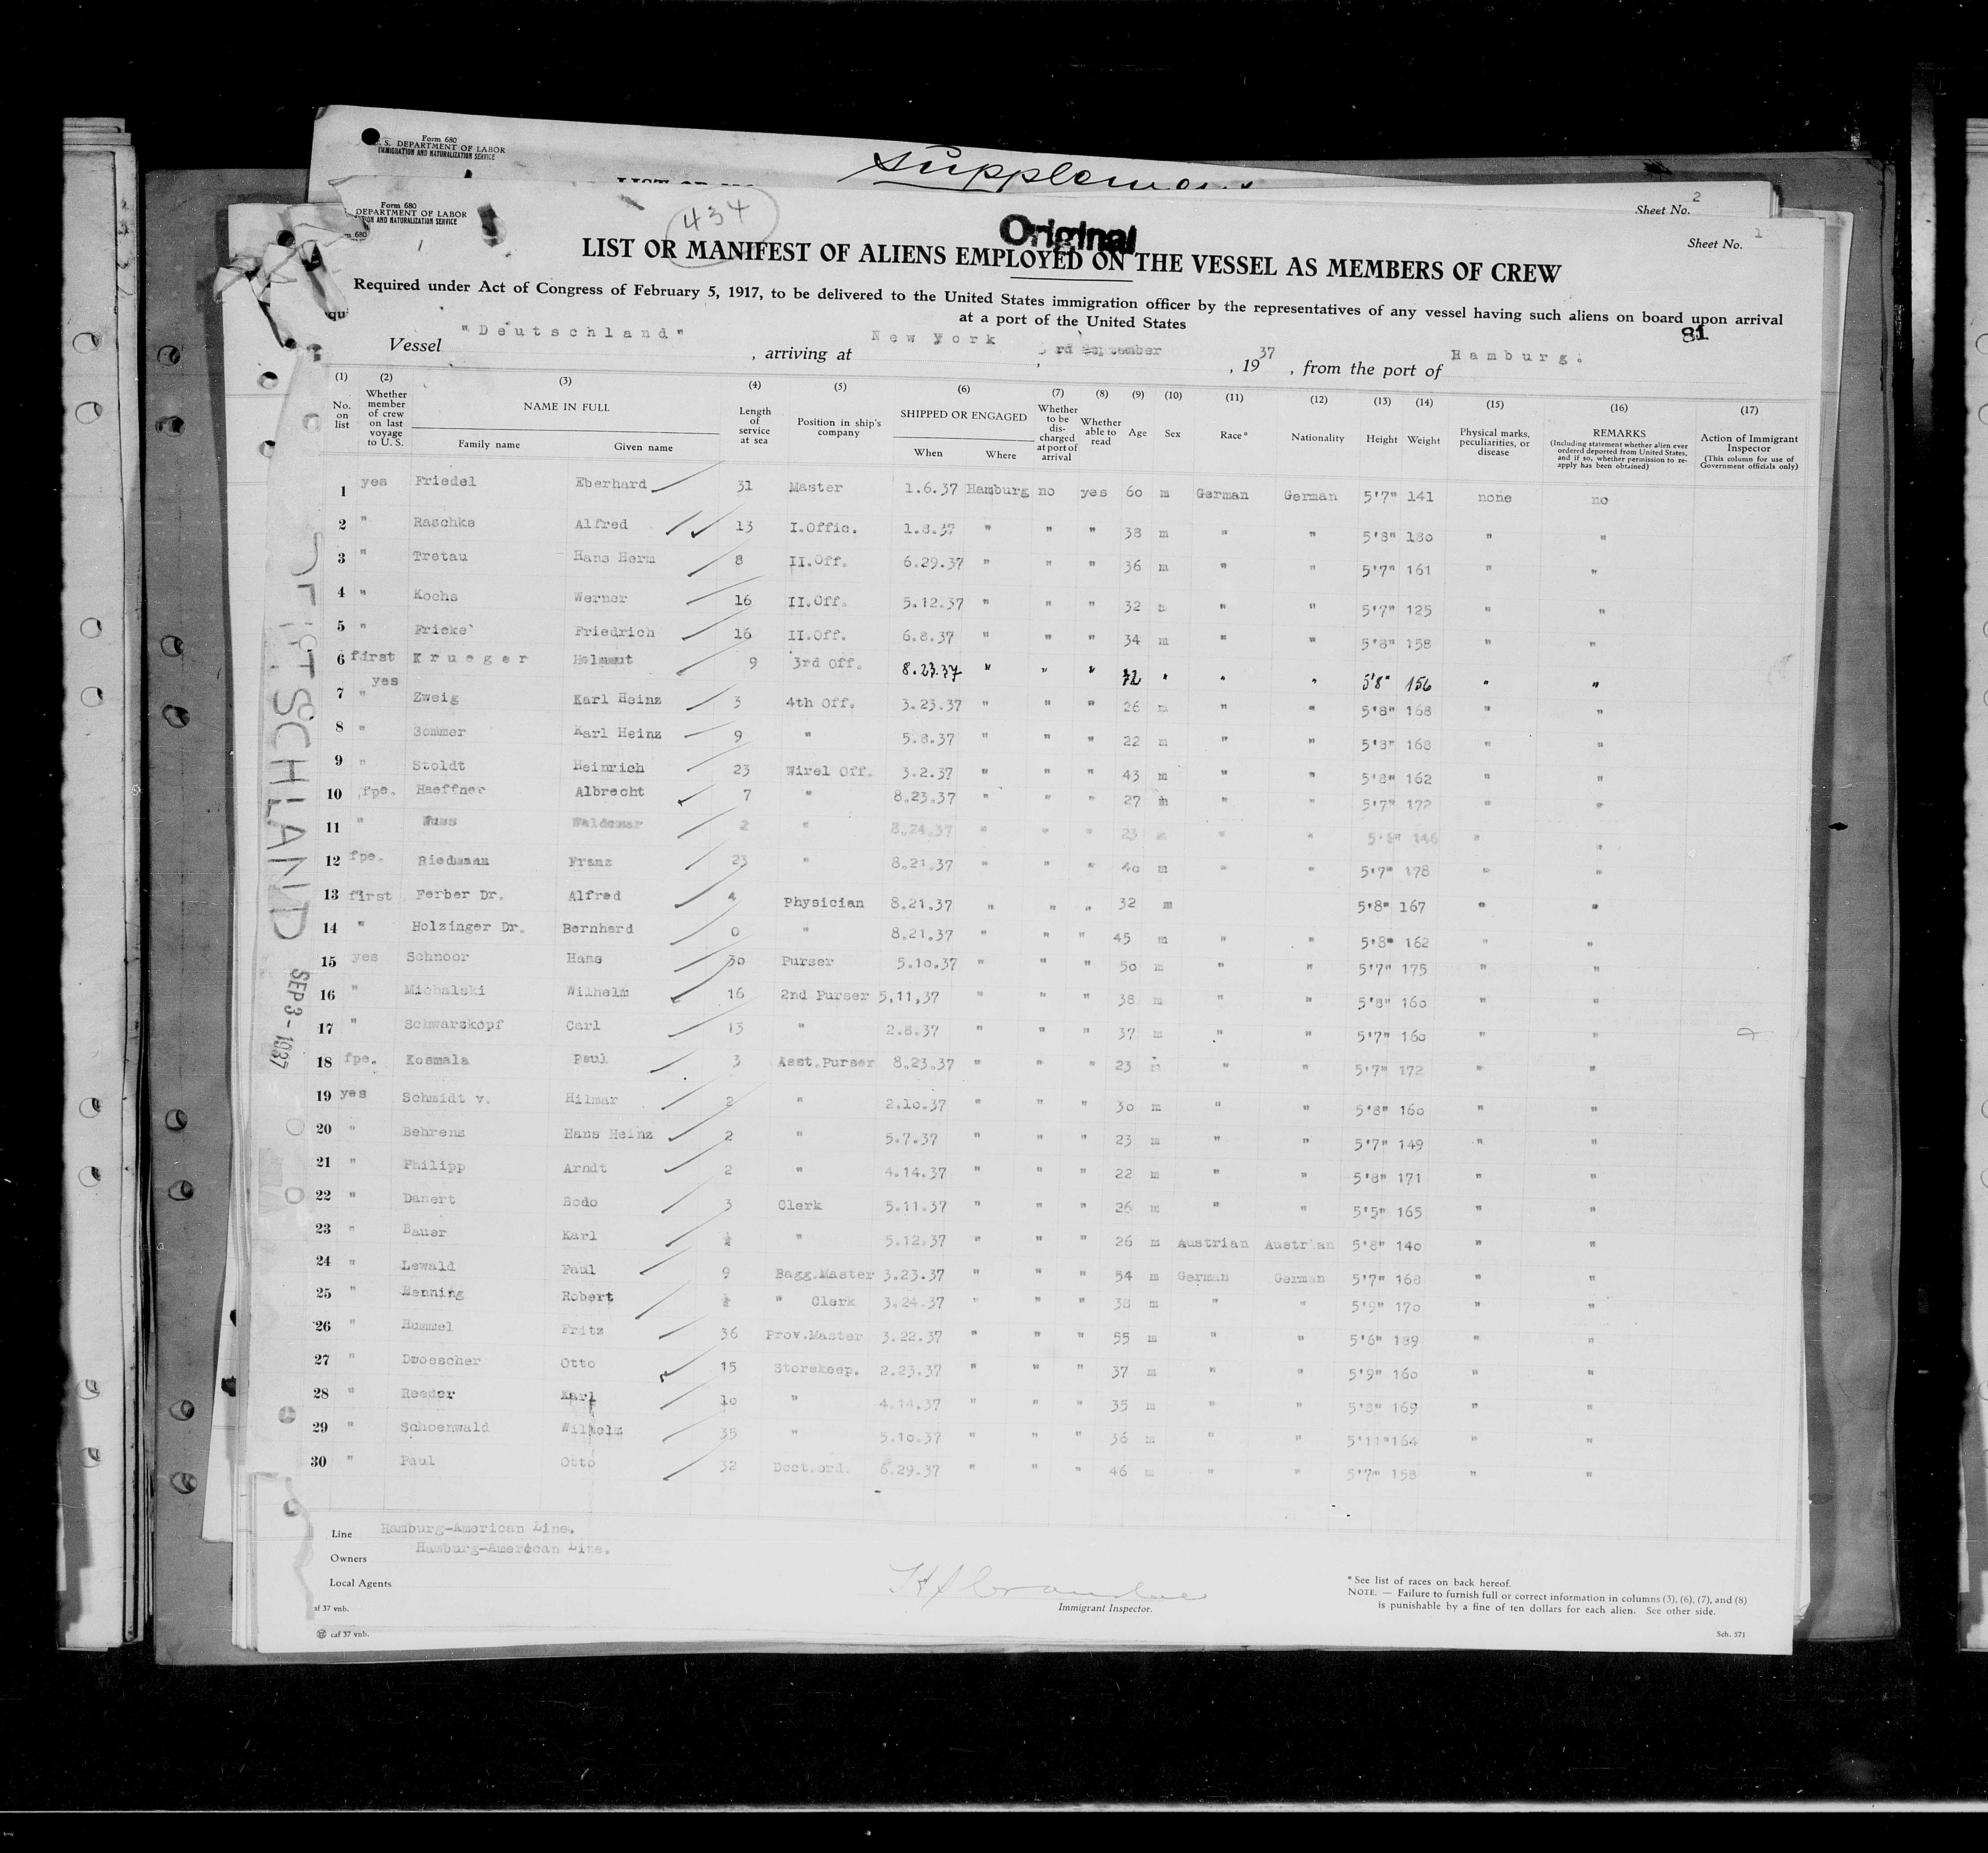 Form 680
S. DEPARTMENT OF LABOR
IMMIGRATION AND NATURALIZATION SERVICE
Supplement
Sheet No. 2
Form 680
DEPARTMENT OF LABOR
ION AND NATURALIZATION SERVICE
m 680
434
Original
Sheet No. 1
LIST OR MANIFEST OF ALIENS EMPLOYED ON THE VESSEL AS MEMBERS OF CREW
Required under Act of Congress of February 5, 1917, to be delivered to the United States immigration officer by the representatives of any vessel having such aliens on board upon arrival
at a port of the United States
81
Vessel "Deutschland", arriving at New York, rd September, 1937, from the port of Hamburg.
(1) (2) (3) (4) (5) (6) (7) (8) (9) (10) (11) (12) (13) (14) (15) (16) (17)
No. on list
Whether member of crew on last voyage to U. S.
NAME IN FULL
Family name
Given name
Length of service at sea
Position in ship's company
SHIPPED OR ENGAGED
When
Where
Whether to be discharged at port of arrival
Whether able to read
Age
Sex
Race*
Nationality
Height
Weight
Physical marks, peculiarities, or disease
REMARKS
(Including statement whether alien ever ordered deported from United States, and if so, whether permission to re-apply has been obtained)
Action of Immigrant Inspector
(This column for use of Government officials only)
1 yes Friedel Eberhard 31 Master 1.6.37 Hamburg no yes 60 m German German 5'7" 141 none no
2 " Raschke Alfred 13 I.Offic. 1.8.37 " " " 38 m " " 5'8" 180 " "
3 " Tretau Hans Herm 8 II.Off. 6.29.37 " " " 36 m " " 5'7" 161 " "
4 " Kochs Werner 16 II.Off. 5.12.37 " " " 32 m " " 5'7" 125 " "
5 " Fricke Friedrich 16 II.Off. 6.8.37 " " " 34 m " " 5'8" 158 " "
6 first Krueger Helmmut 9 3rd Off. 8.23.37 " " " 32 " " " 5'8" 156 " "
yes
7 " Zweig Karl Heinz 3 4th Off. 3.23.37 " " " 26 m " " 5'8" 168 " "
8 " Sommer Karl Heinz 9 " 5.8.37 " " " 22 m " " 5'8" 168 " "
9 " Stoldt Heinrich 23 Wirel Off. 3.2.37 " " " 43 m " " 5'8" 162 " "
10 fpe. Haeffner Albrecht 7 " 8.23.37 " " " 27 m " " 5'7" 172 " "
11 " Waldemar 2 " 8.24.37 " " " 23 m " " 146 " "
12 fpe. Riedmann Franz 23 " 8.21.37 " " " 40 m " " 5'7" 178 " "
13 first Ferber Dr. Alfred 4 Physician 8.21.37 " " " 32 m 5'8" 167 " "
14 " Holzinger Dr. Bernhard 0 " 8.21.37 " " " 45 m " " 5'8" 162 " "
15 yes Schnoor Hans 30 Purser 5.10.37 " " " 50 m " " 5'7" 175 " "
16 " Michalski Wilhelm 16 2nd Purser 5,11,37 " " " 38 m " " 5'8" 160 " "
17 " Schwarzkopf Carl 13 " 2.8.37 " " " 37 m " " 5'7" 160 " "
18 fpe. Kosmala Paul 3 Asst.Purser 8.23.37 " " " 23 m " " 5'7" 172 " "
19 yes Schmidt v. Hilmar 2 " 2.10.37 " " " 30 m " " 5'8" 160 " "
20 " Behrens Hans Heinz 2 " 5.7.37 " " " 23 m " " 5'7" 149 " "
21 " Philipp Arndt 2 " 4.14.37 " " " 22 m " " 5'8" 171 " "
22 " Danert Bodo 3 Clerk 5.11.37 " " " 26 m " " 5'5" 165 " "
23 " Bauer Karl " 5.12.37 " " " 26 m Austrian Austrian 5'8" 140 " "
24 " Lewald Paul 9 Bagg.Master 3.23.37 " " " 54 m German German 5'7" 168 " "
25 " Henning Robert " Clerk 3.24.37 " " " 38 m " " 5'9" 170 " "
26 " Hummel Fritz 36 Prov.Master 3.22.37 " " " 55 m " " 5'6" 189 " "
27 " Dwoescher Otto 15 Storekeep. 2.23.37 " " " 37 m " " 5'9" 160 " "
28 " Reeder Karl 10 " 4.14.37 " " " 35 m " " 5'8" 169 " "
29 " Schoenwald Wilhelm 35 " 5.10.37 " " " 36 m " " 5'11" 164 " "
30 " Paul Otto 32 Doct.ord. 6.29.37 " " " 46 m " " 5'7" 158 " "
DEUTSCHLAND
SEP 3 - 1937
Line Hamburg-American Line.
Owners Hamburg-American Line.
Local Agents
af 37 vnb.
caf 37 vnb.
Immigrant Inspector.
* See list of races on back hereof.
NOTE. — Failure to furnish full or correct information in columns (3), (6), (7), and (8)
is punishable by a fine of ten dollars for each alien. See other side.
Sch. 571